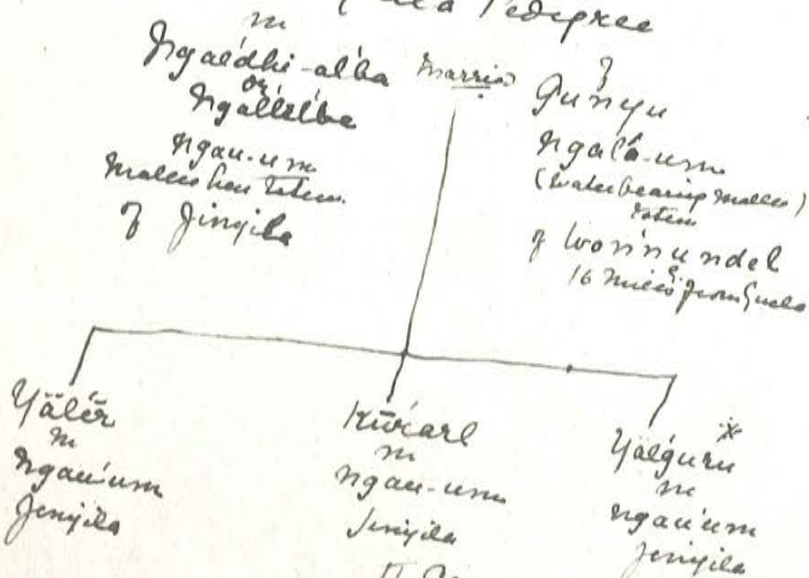 Pedigree
m
Ngaédhi-alba married
or
Ngallilba
ngau-um
Mallee hen totem
of Jinyila
f
Gunyu
ngalá-um
(water bearing mallee)
totem
of Wonnundel
16 miles from
Yălĕr
m
ngau'um
Jinyila
Kūrarl
m
ngau-um
Jinyila
Yalguru *
m
ngau'um
Jinyila